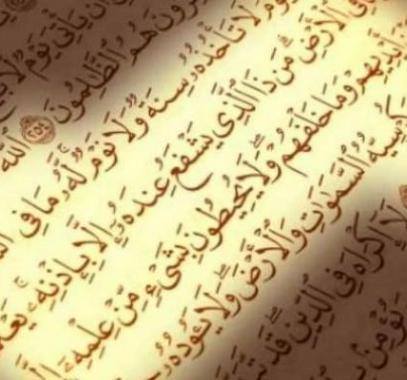 أَن يَأْتِيَ يَوْمٌ لَّا
هُمُ الظَّالِمُونَ ٢٥٤ اللَّهُ
لَا تَأْخُذُهُ سِنَةٌ وَلَا نَوْمٌ لَّهُ مَا فِي
الْأَرْضِ مَن ذَا الَّذِي يَشْفَعُ عِندَهُ إِلَّا بِإِذْنِهِ
وَمَا خَلْفَهُمْ وَلَا يُحِيطُونَ بِشَيْءٍ مِّنْ عِلْمِهِ
السَّمَاوَاتِ وَالْأَرْضَ وَلَا يَئُودُهُ
لَا إِكْرَاهَ فِي الدِّينِ قَد